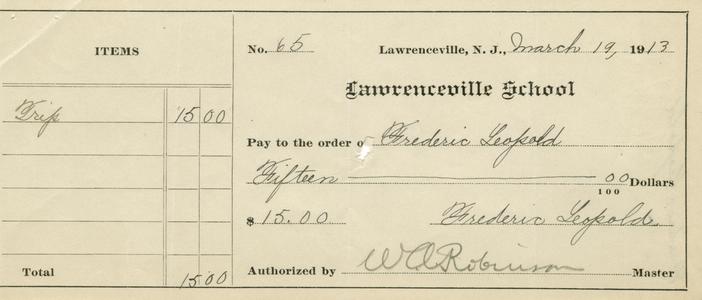 ITEMS
Trip 15 00
Total 15.00
No. 65 Lawrenceville, N. J., March 19, 1913
Lawrenceville School
Pay to the order of Frederic Leopold
Fifteen 00/100 Dollars
$ 15.00 Frederic Leopold
Authorized by W A Robinson Master